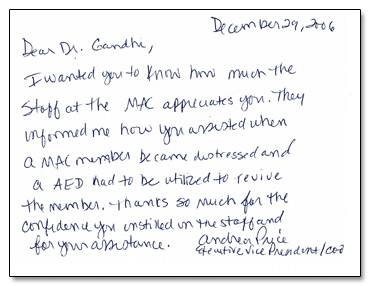 December 29, 2006
Dear Dr. Gandhi,
I wanted you to know how much the
staff at the MAC appreciates you. They
informed me how you assisted when
a MAC member became distressed and
a AED had to be utilized to revive
the member. Thanks so much for the
confidence you instilled in the staff and
for your assistance.
Andrea Price
Executive Vice President/COO